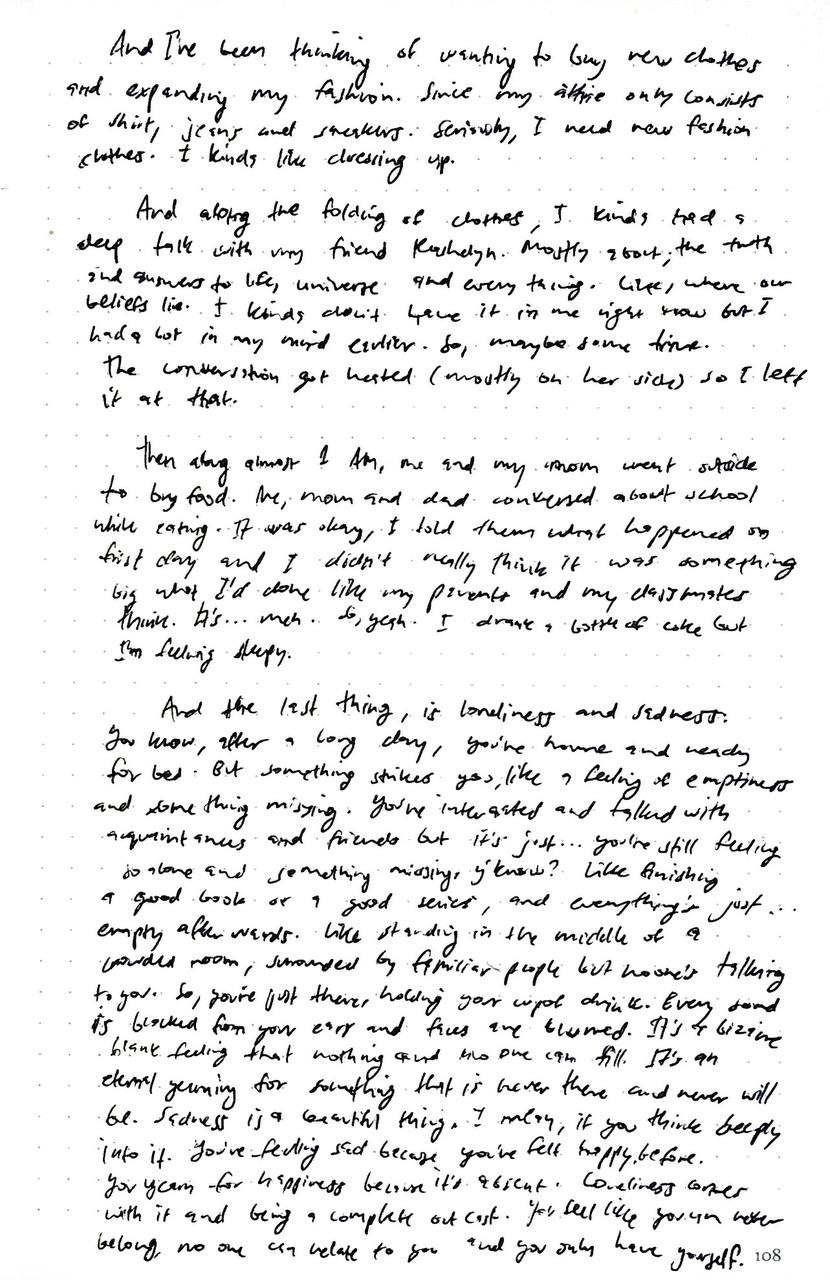 And I've been thinking of wanting to buy new clothes
and expanding my fashion. Since my attire only consists
of shirt, jeans and sneakers. Seriously, I need new fashion
clothes. I kinda like dressing up.
And along the folding of clothes, I kinda had a
deep talk with my friend Mostly about, the truth
and answers to life, universe and everything. Like, where our
beliefs lie. I kinda don't have it in me right now but I
had a lot in my mind earlier. So, maybe some time.
The conversation got heated (mostly on her side) so I left
it at that.
Then along almost 1 AM, me and my mom went outside
to buy food. Me, mom and dad conversed about school
while eating. It was okay, I told them what happened on
first day and I didn't really think it was something
big what I'd done like my parents and my classmates
think. It's... meh. So, yeah. I drank a bottle of coke but
I'm feeling sleepy.
And the last thing, is loneliness and sadness.
You know, after a long day, you're home and ready
for bed. But something strikes you, like a feeling of emptiness
and something missing. You've interacted and talked with
acquaintances and friends but it's just... you're still feeling
so alone and something missing, y'know? Like finishing
a good book or a good series, and everything's just...
empty afterwards. Like standing in the middle of a
crowded room, surrounded by familiar people but no one's talking
to you. So, you're just there, holding your cup of drink. Every sound
is blocked from your ears and faces are blurred. It's a bizarre
blank feeling that nothing and no one can fill. It's an
eternal yearning for something that is never there and never will
be. Sadness is a beautiful thing. I mean, if you think deeply
into it. You're feeling sad because you've felt happy before.
You yearn for happiness because it's absent. Loneliness comes
with it and being a complete outcast. You feel like you can never
belong, no one can relate to you and you only have yourself. 108